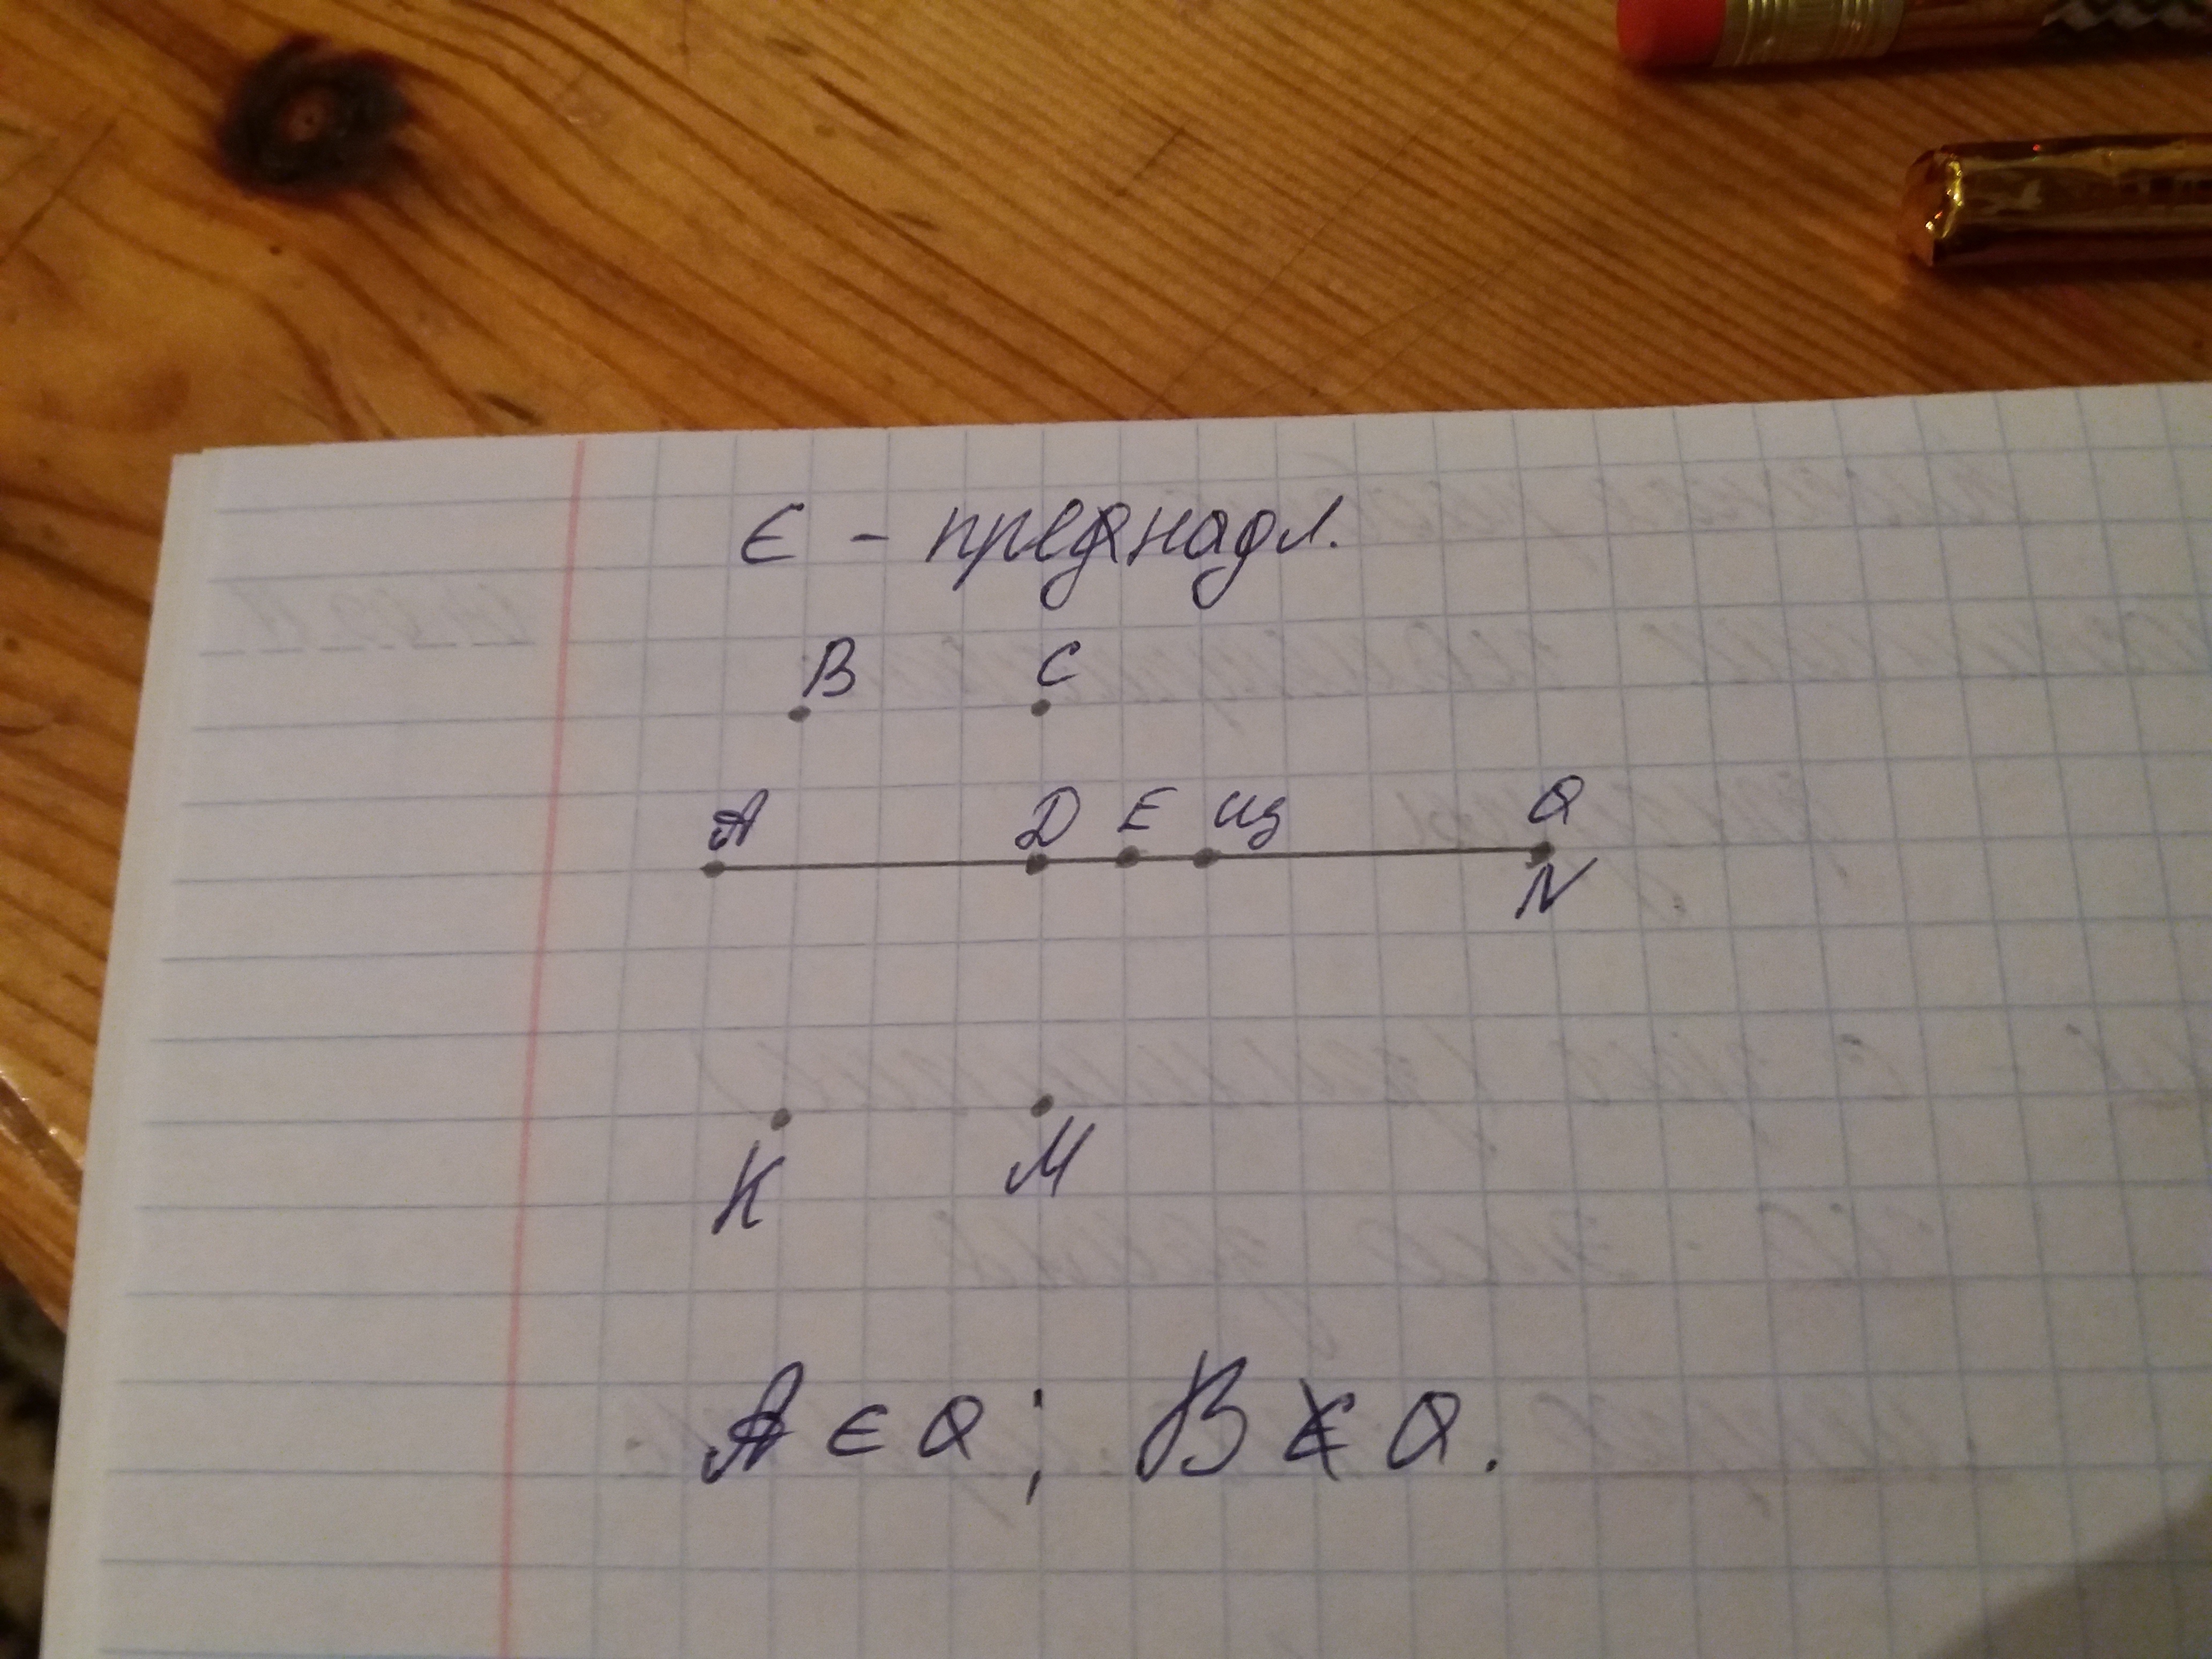 ∈ - преднадл.
B C
A D E Ц Q
N
K M
A ∈ Q ; B ∉ Q .